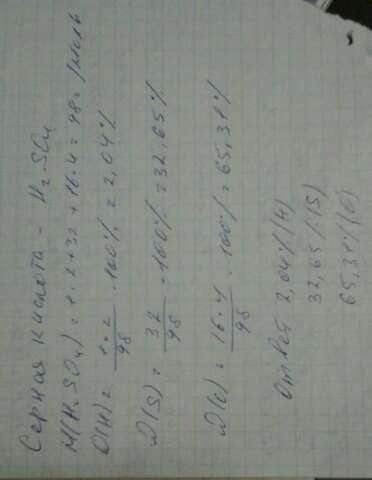 Серная кислота - H2SO4
M(H2SO4) = 1·2+32+16·4 = 98г/моль
ω(H) = 1·2/98 · 100% = 2,04%
ω(S) = 32/98 · 100% = 32,65%
ω(O) = 16·4/98 · 100% = 65,31%
Ответ 2,04%(H)
32,65%(S)
65,31%(O)